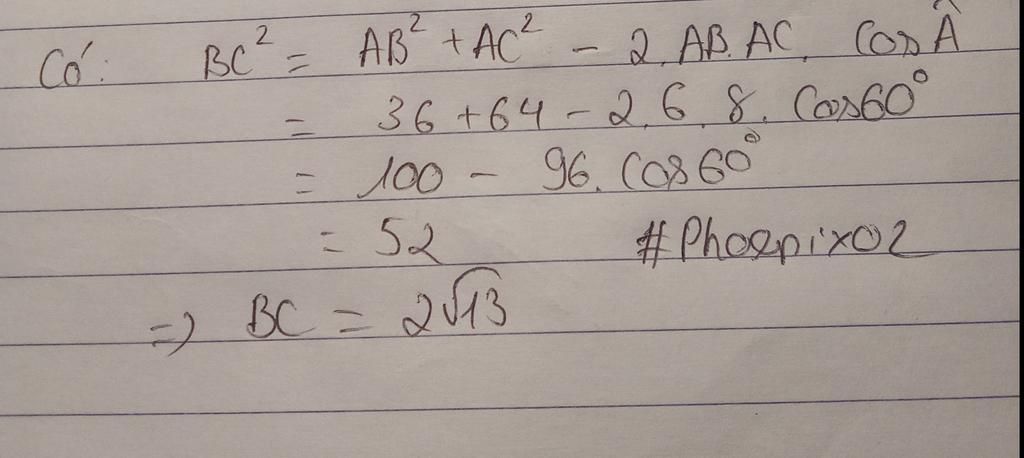 Có: BC² = AB² + AC² - 2. AB. AC. Cos Â
= 36 + 64 - 2. 6. 8. Cos60°
= 100 - 96. Cos60°
= 52 #Phoenix02
=> BC = 2√13